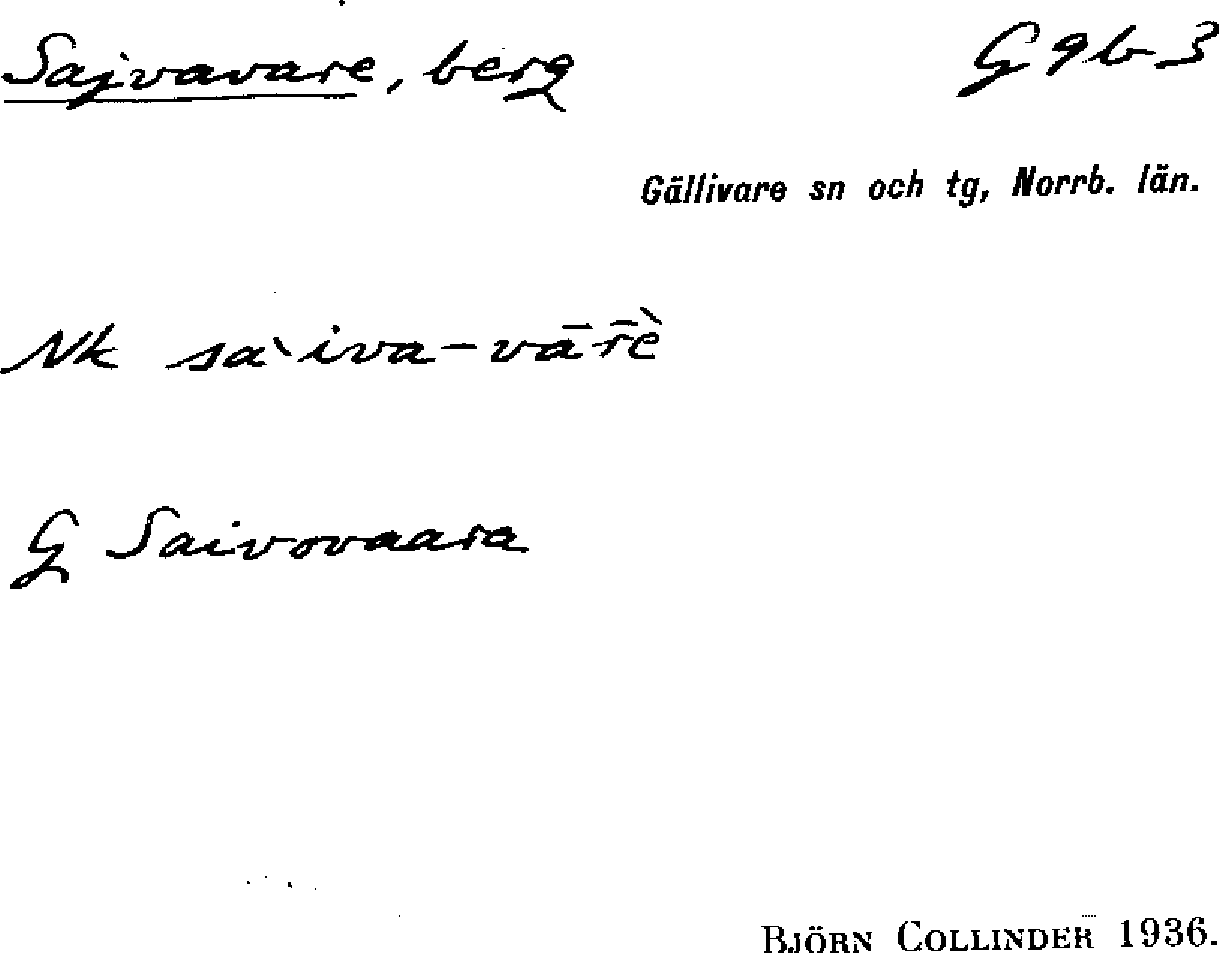 Sajvavare, berg G 9 b 3
Gällivare sn och tg, Norrb. län.
Nk sa`iva-vār̄è
G Saivovaara
BJÖRN COLLINDER 1936.